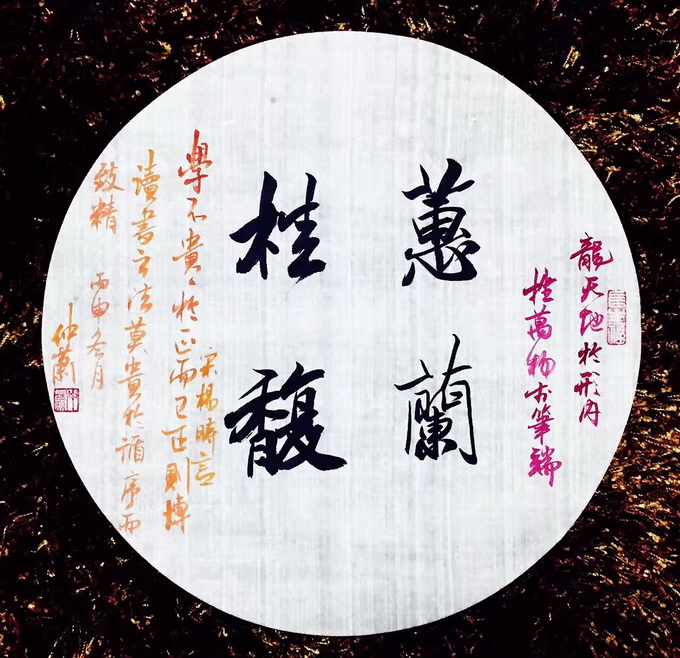 龍天地於形内
挫萬物於筆端
蕙蘭
桂馥
宋楊時言
學不貴〻於正而已正則博
讀書之法莫貴於循序而
致精
丙申冬月
仲